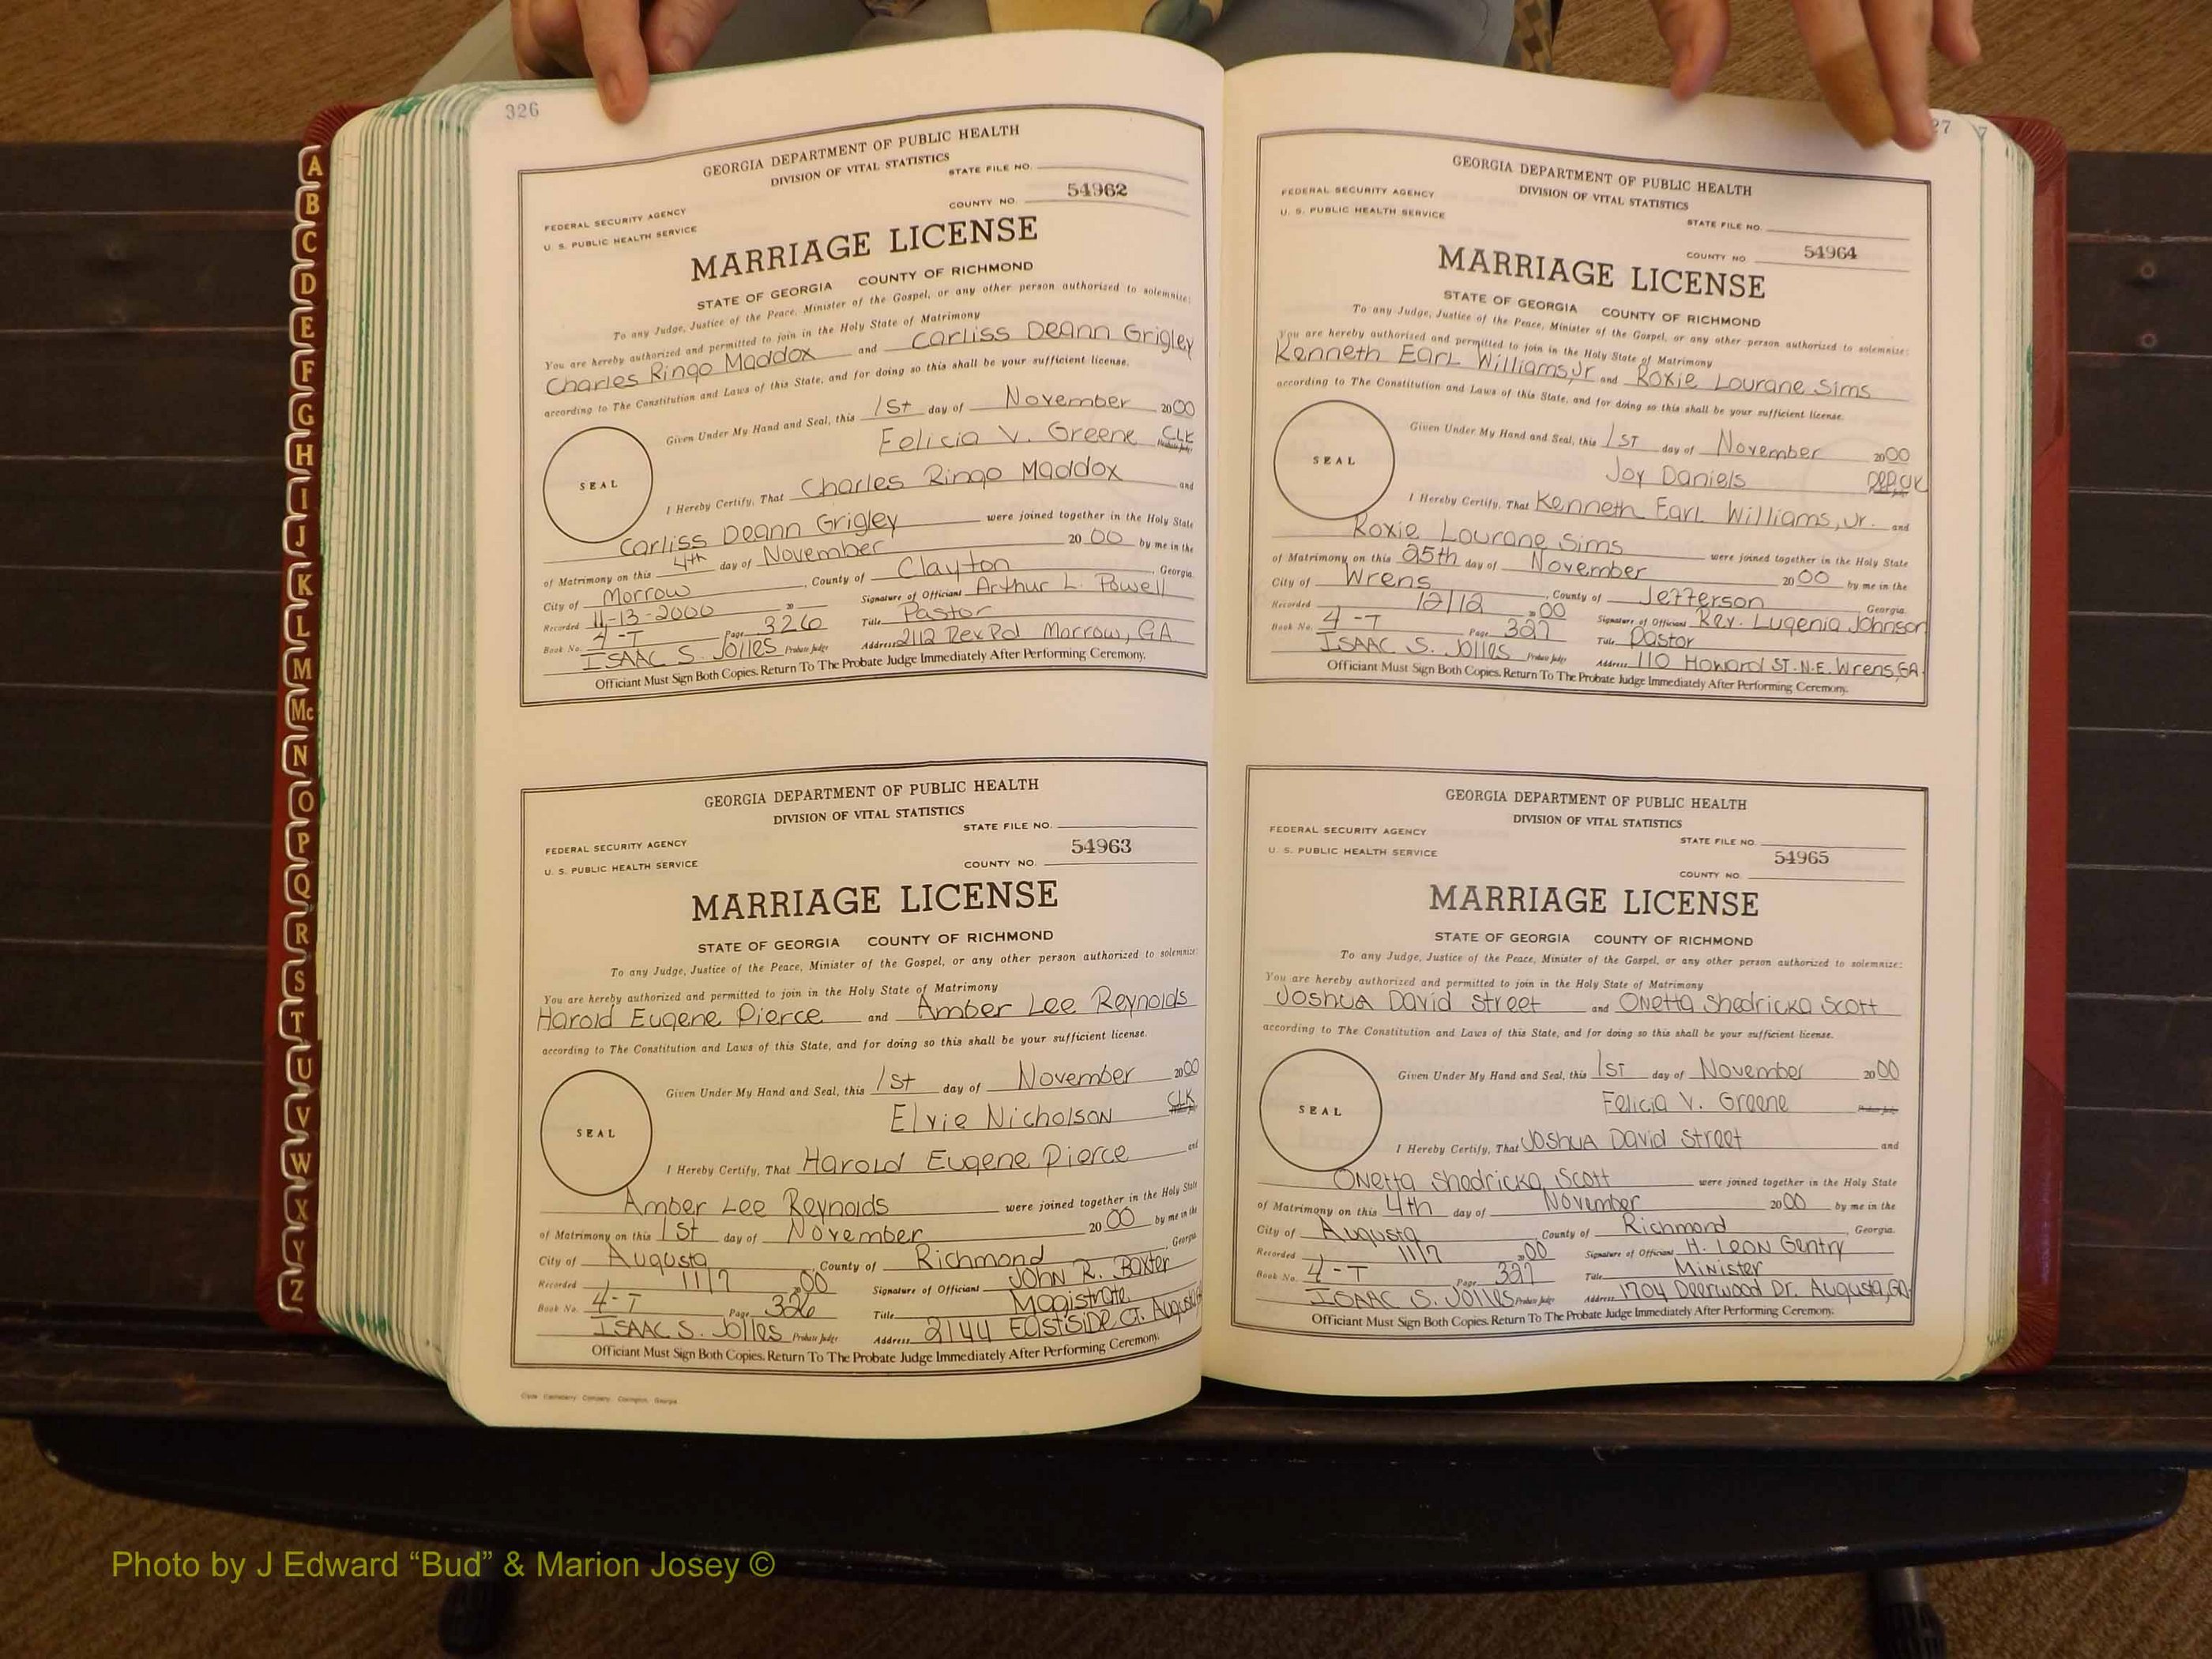 A
B
C
D
E
F
G
H
I
J
K
L
M
Mc
N
O
P
Q
R
S
T
U
V
W
X
Y
Z
326
GEORGIA DEPARTMENT OF PUBLIC HEALTH
DIVISION OF VITAL STATISTICS
STATE FILE NO.
FEDERAL SECURITY AGENCY
U. S. PUBLIC HEALTH SERVICE
COUNTY NO. 54962
MARRIAGE LICENSE
STATE OF GEORGIA COUNTY OF RICHMOND
To any Judge, Justice of the Peace, Minister of the Gospel, or any other person authorized to solemnize:
You are hereby authorized and permitted to join in the Holy State of Matrimony
Charles Ringo Maddox and Carliss Deann Grigley
according to The Constitution and Laws of this State, and for doing so this shall be your sufficient license.
Given Under My Hand and Seal, this 1st day of November 2000
Felicia V. Greene CLK
SEAL
I Hereby Certify, That Charles Ringo Maddox and
Carliss Deann Grigley were joined together in the Holy State
of Matrimony on this 4th day of November 20 00 by me in the
City of Morrow, County of Clayton, Georgia.
Recorded 11-13-2000 20 Signature of Officiant Arthur L. Powell
Book No. 4-T Page 326 Title Pastor
ISAAC S. Jolles Probate Judge Address 2112 Rex Rd Morrow, GA
Officiant Must Sign Both Copies. Return To The Probate Judge Immediately After Performing Ceremony.
GEORGIA DEPARTMENT OF PUBLIC HEALTH
DIVISION OF VITAL STATISTICS
STATE FILE NO.
FEDERAL SECURITY AGENCY
U. S. PUBLIC HEALTH SERVICE
COUNTY NO. 54963
MARRIAGE LICENSE
STATE OF GEORGIA COUNTY OF RICHMOND
To any Judge, Justice of the Peace, Minister of the Gospel, or any other person authorized to solemnize:
You are hereby authorized and permitted to join in the Holy State of Matrimony
Harold Eugene Pierce and Amber Lee Reynolds
according to The Constitution and Laws of this State, and for doing so this shall be your sufficient license.
Given Under My Hand and Seal, this 1st day of November 2000
Elvie Nicholson CLK
SEAL
I Hereby Certify, That Harold Eugene Pierce and
Amber Lee Reynolds were joined together in the Holy State
of Matrimony on this 1st day of November 20 00 by me in the
City of Augusta, County of Richmond, Georgia.
Recorded 11/7 2000 Signature of Officiant John R. Baxter
Book No. 4-T Page 326 Title Magistrate
ISAAC S. Jolles Probate Judge Address 2144 Eastside Ct. Augusta
Officiant Must Sign Both Copies. Return To The Probate Judge Immediately After Performing Ceremony.
Clyde Castleberry Company, Covington, Georgia
27 7
GEORGIA DEPARTMENT OF PUBLIC HEALTH
DIVISION OF VITAL STATISTICS
FEDERAL SECURITY AGENCY
U. S. PUBLIC HEALTH SERVICE
STATE FILE NO.
COUNTY NO. 54964
MARRIAGE LICENSE
STATE OF GEORGIA COUNTY OF RICHMOND
To any Judge, Justice of the Peace, Minister of the Gospel, or any other person authorized to solemnize:
You are hereby authorized and permitted to join in the Holy State of Matrimony
Kenneth Earl Williams, Jr and Roxie Lourane Sims
according to The Constitution and Laws of this State, and for doing so this shall be your sufficient license.
Given Under My Hand and Seal, this 1ST day of November 2000
Joy Daniels
SEAL
I Hereby Certify, That Kenneth Earl Williams, Jr. and
Roxie Lourane Sims were joined together in the Holy State
of Matrimony on this 25th day of November 20 00 by me in the
City of Wrens, County of Jefferson, Georgia.
Recorded 12/12 2000 Signature of Officiant Rev. Lugenia Johnson
Book No. 4-T Page 327 Title Pastor
ISAAC S. Jolles Probate Judge Address 110 Howard ST. N.E. Wrens, GA.
Officiant Must Sign Both Copies. Return To The Probate Judge Immediately After Performing Ceremony.
GEORGIA DEPARTMENT OF PUBLIC HEALTH
DIVISION OF VITAL STATISTICS
FEDERAL SECURITY AGENCY
U. S. PUBLIC HEALTH SERVICE
STATE FILE NO.
COUNTY NO. 54965
MARRIAGE LICENSE
STATE OF GEORGIA COUNTY OF RICHMOND
To any Judge, Justice of the Peace, Minister of the Gospel, or any other person authorized to solemnize:
You are hereby authorized and permitted to join in the Holy State of Matrimony
Joshua David Street and Onetta Shedricka Scott
according to The Constitution and Laws of this State, and for doing so this shall be your sufficient license.
Given Under My Hand and Seal, this 1ST day of November 2000
Felicia V. Greene Probate Judge
SEAL
I Hereby Certify, That Joshua David Street and
Onetta Shedricka Scott were joined together in the Holy State
of Matrimony on this 4th day of November 2000 by me in the
City of Augusta, County of Richmond, Georgia.
Recorded 11/7 2000 Signature of Officiant H. Leon Gentry
Book No. 4-T Page 327 Title Minister
ISAAC S. Jolles Probate Judge Address 1704 Deerwood Dr. Augusta, GA.
Officiant Must Sign Both Copies. Return To The Probate Judge Immediately After Performing Ceremony.
Photo by J Edward “Bud” & Marion Josey ©